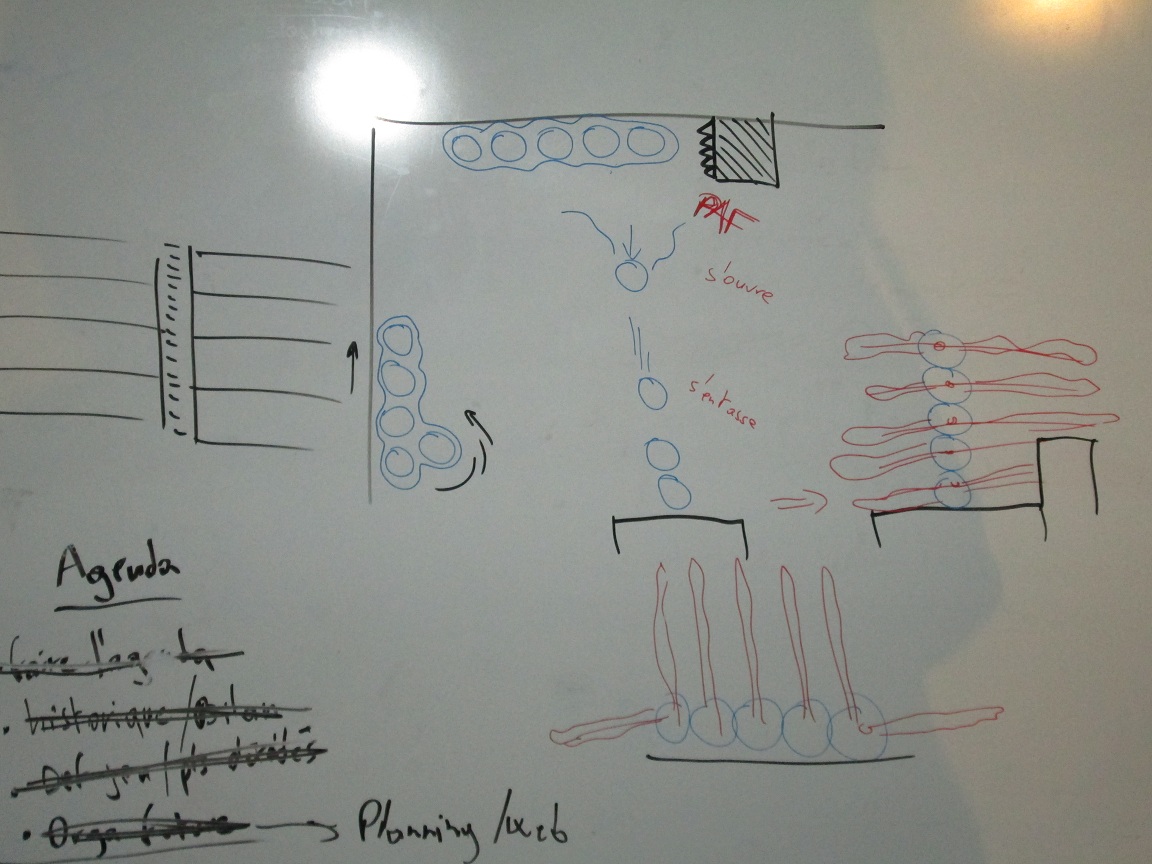 PAF
s'ouvre
s'entasse
Agenda
faire l'agenda
• historique / Bilan
• Def jeu / pts
• Orga future → Planning / web